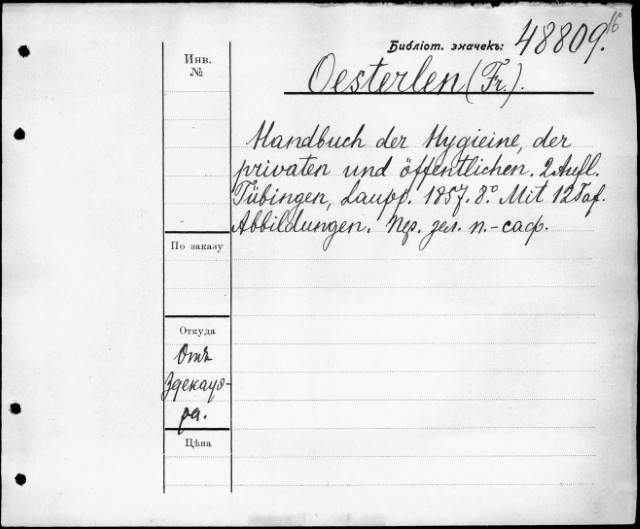 Библіот. значекъ: 48809.
Инв. №
Oesterlen (Fr.).
Handbuch der Hygieine, der
privaten und öffentlichen. 2 Aufl.
Tübingen, Laupp. 1857. 8º. Mit 12 Taf.
Abbildungen. Пер. зел. п.-саф.
По заказу
Откуда
Отъ
Здекауэ-
ра.
Цѣна